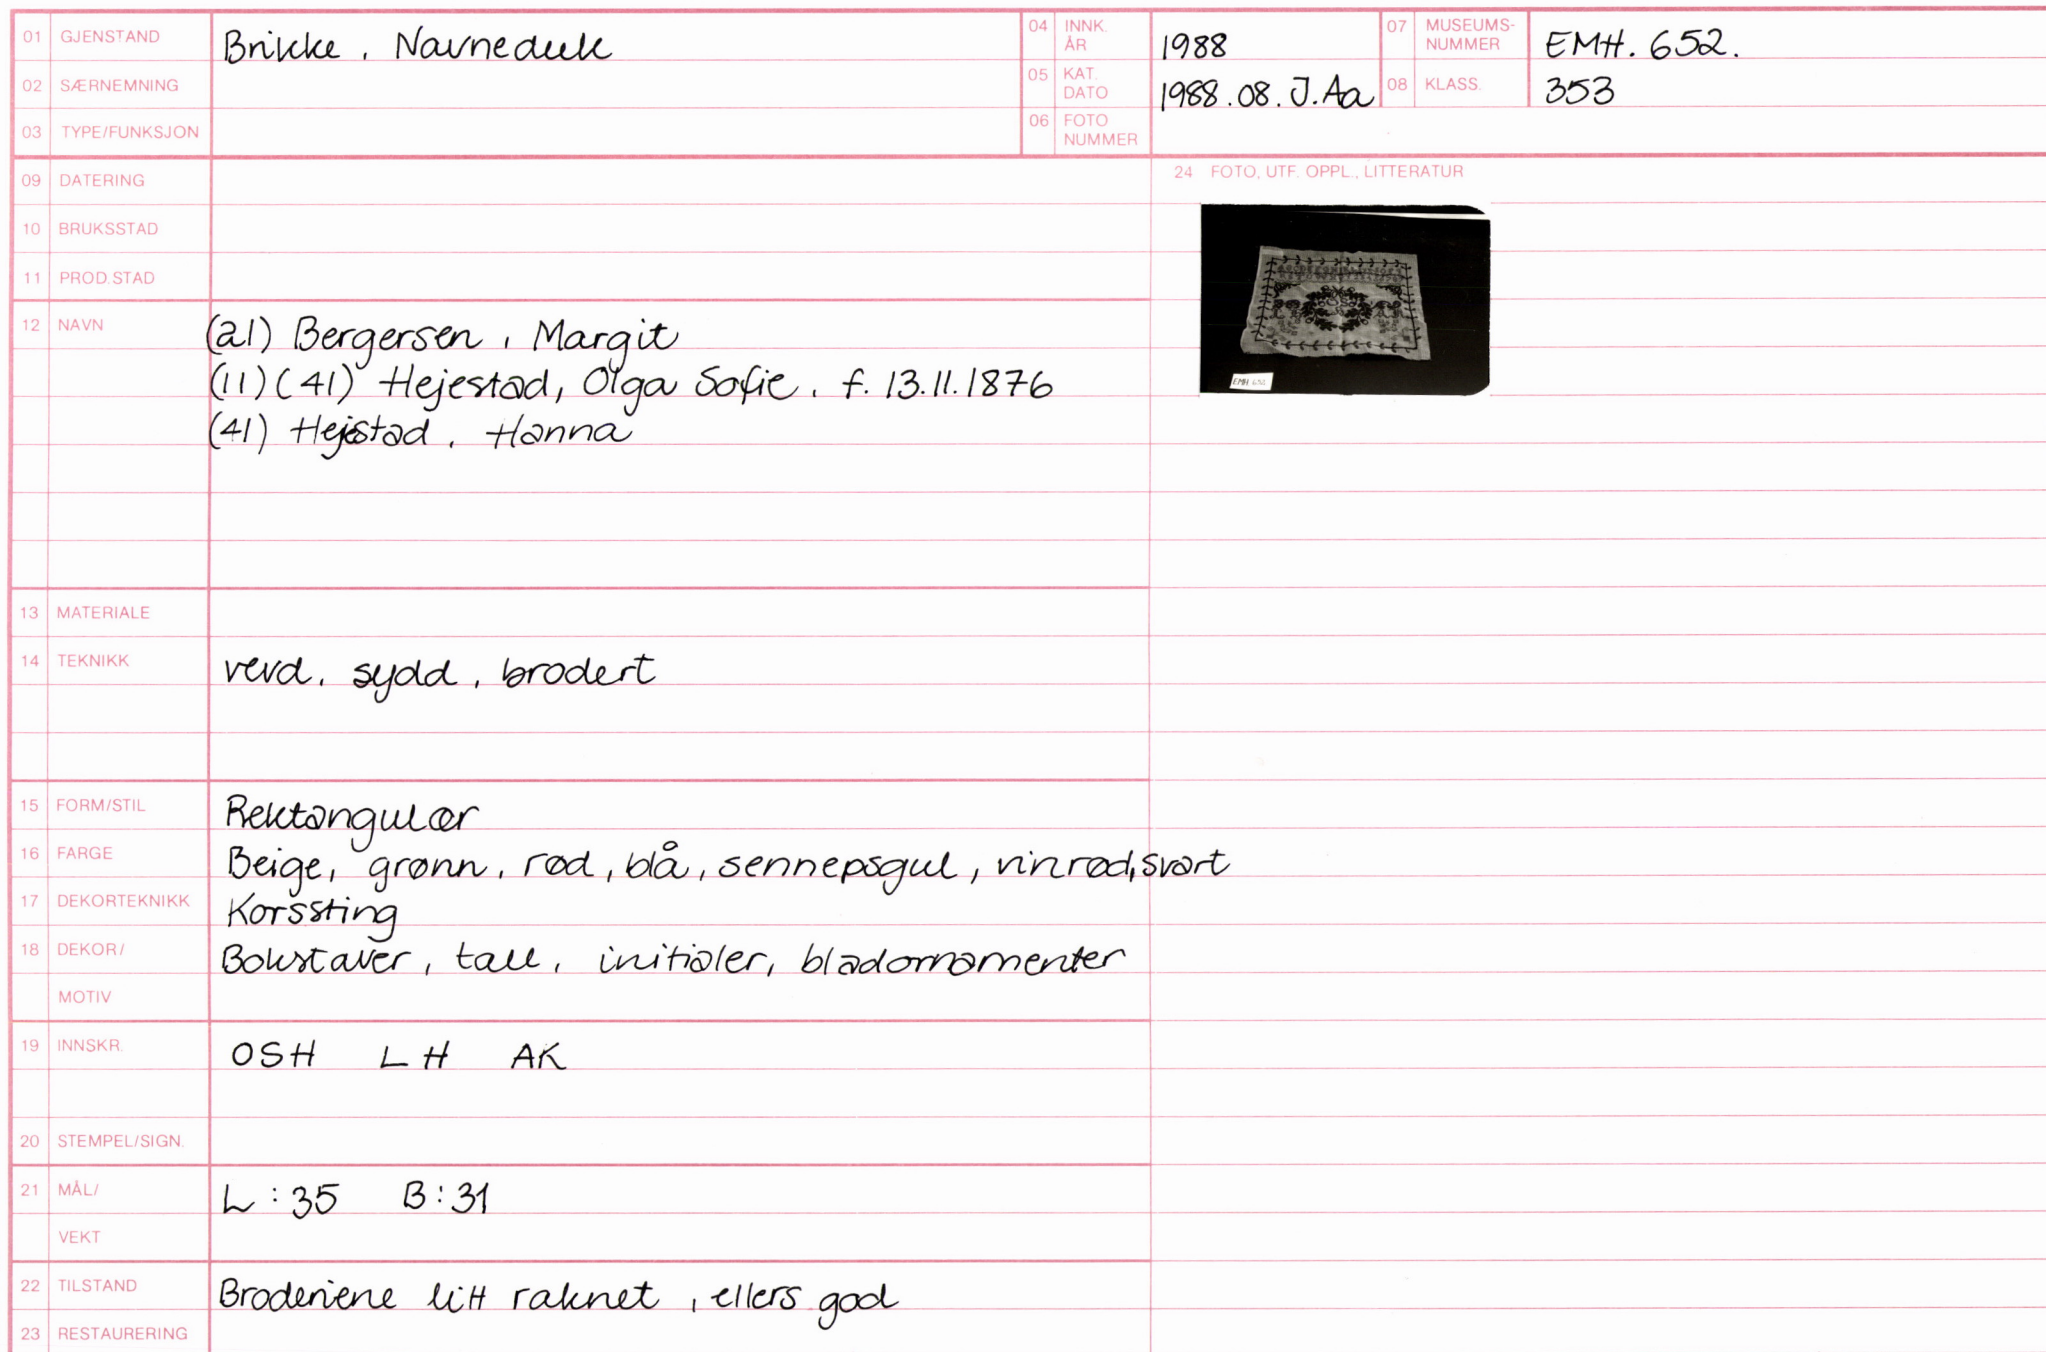 01 GJENSTAND Brikke, Navneduk
02 SÆRNEMNING
03 TYPE/FUNKSJON
04 INNK. ÅR 1988
05 KAT. DATO 1988.08. J.Aa
06 FOTO NUMMER
07 MUSEUMS-NUMMER EMH. 652.
08 KLASS. 353
09 DATERING
10 BRUKSSTAD
11 PROD.STAD
12 NAVN (21) Bergersen, Margit
(11)(41) Hejestad, Olga Sofie. f. 13.11.1876
(41) Hejestad, Hanna
13 MATERIALE
14 TEKNIKK vevd, sydd, brodert
15 FORM/STIL Rektangulær
16 FARGE Beige, grønn, rød, blå, sennepsgul, vinrød, svart
17 DEKORTEKNIKK Korssting
18 DEKOR/ Bokstaver, tall, initialer, bladornamenter
MOTIV
19 INNSKR. OSH LH AK
20 STEMPEL/SIGN.
21 MÅL/ L: 35 B: 31
VEKT
22 TILSTAND Broderiene litt raknet, ellers god
23 RESTAURERING
24 FOTO, UTF. OPPL., LITTERATUR
EMH 652